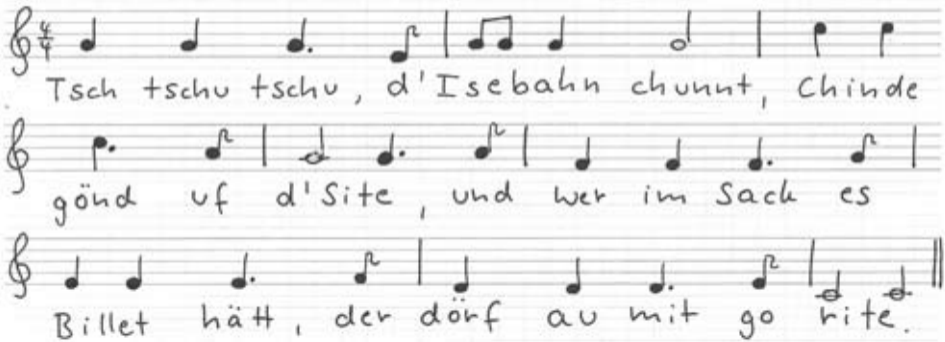 4/4
Tsch tschu tschu, d'Isebahn chunnt, Chinde
gönd uf d'Site, und wer im Sack es
Billet hätt, der dörf au mit go rite.